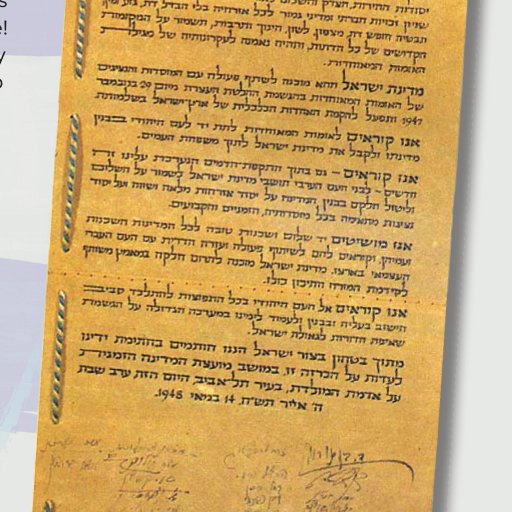 e!
y
יסודות החירות, הצדק והשלום
שויון זכויות חברתי ומדיני גמור לכל אזרחיה בלי הבדל דת, גזע ומין
תבטיח חופש דת, מצפון, לשון, חינוך ותרבות, תשמור על המקומות
הקדושים של כל הדתות, ותהיה נאמנה לעקרונותיה של מגילת
האומות המאוחדות.
מדינת ישראל תהא מוכנה לשתף פעולה עם המוסדות והנציגים
של האומות המאוחדות בהגשמת החלטת העצרת מיום 29 בנובמבר
1947 ותפעל להקמת האחדות הכלכלית של ארץ-ישראל בשלמותה.
אנו קוראים לאומות המאוחדות לתת יד לעם היהודי בבנין
מדינתו ולקבל את מדינת ישראל לתוך משפחת העמים.
אנו קוראים – גם בתוך התקפת-הדמים הנערכת עלינו זה
חדשים – לבני העם הערבי תושבי מדינת ישראל לשמור על השלום
וליטול חלקם בבנין המדינה על יסוד אזרחות מלאה ושווה ועל יסוד
נציגות מתאימה בכל מוסדותיה, הזמניים והקבועים.
אנו מושיטים יד שלום ושכנות טובה לכל המדינות השכנות
ועמיהן, וקוראים להם לשיתוף פעולה ועזרה הדדית עם העם העברי
העצמאי בארצו. מדינת ישראל מוכנה לתרום חלקה במאמץ משותף
לקידמת המזרח התיכון כולו.
אנו קוראים אל העם היהודי בכל התפוצות להתלכד סביב
הישוב בעליה ובבנין ולעמוד לימינו במערכה הגדולה על הגשמת
שאיפת הדורות לגאולת ישראל.
מתוך בטחון בצור ישראל הננו חותמים בחתימת ידינו
לעדות על הכרזה זו, במושב מועצת המדינה הזמנית
על אדמת המולדת, בעיר תל-אביב, היום הזה, ערב שבת,
ה' אייר תש"ח, 14 במאי 1948.
ד. בן גוריון